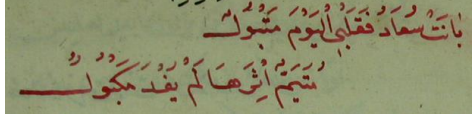 بَانَتْ سُعَادُ فَقَلْبِي الْيَوْمَ مَتْبُولُ
مُتَيَّمٌ اِثْرَهَا لَمْ يُفْدَ مَكْبُولُ